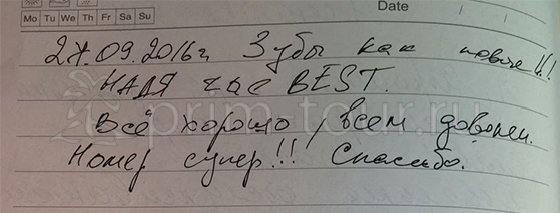 Date
Mo Tu We Th Fr Sa Su
27.09.2016г Зубы как новые!!!
НАДЯ BEST.
prim-tour.ru
Всё хорошо, всем доволен.
Номер супер!!! Спасибо.